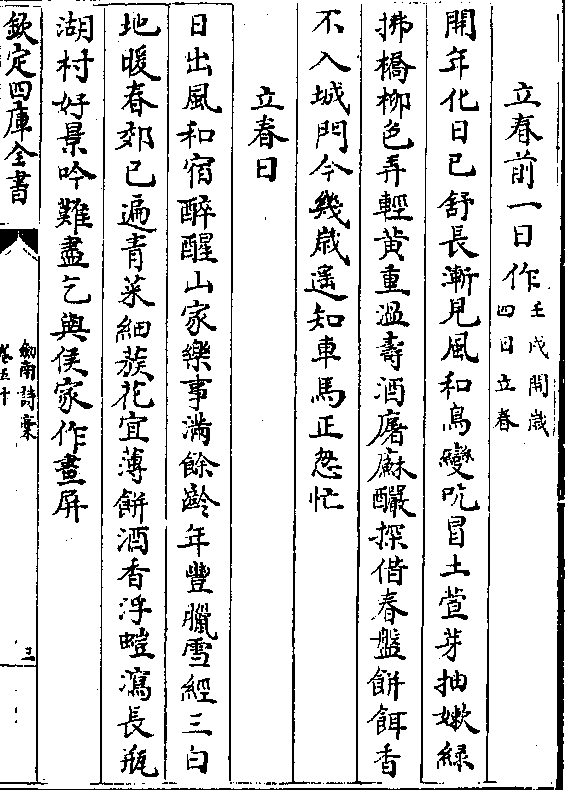 立春前一日作壬戌開歲四日立春
開年化日已舒長漸見風和鳥變吭冒土萱芽抽嫰綠
拂橋柳色弄輕黄重溫壽酒屠蘇釅探借春盤餅餌香
不入城門今幾歲遥知車馬正怱忙
立春日
日出風和宿醉醒山家樂事滿餘齡年豐臘雪經三白
地暖春郊已遍青菜細簇花宜薄餅酒香浮螘瀉長瓶
湖村好景吟難盡乞與侯家作畫屏
欽定四庫全書
劒南詩稾
卷五十
三